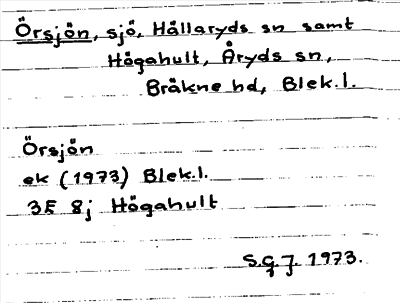 Örsjön, sjö, Hällaryds sn samt
Högahult, Åryds sn,
Bräkne hd, Blek.l.
Örsjön
ek (1973) Blek.l.
3F 8j Högahult
S.G.J. 1973.